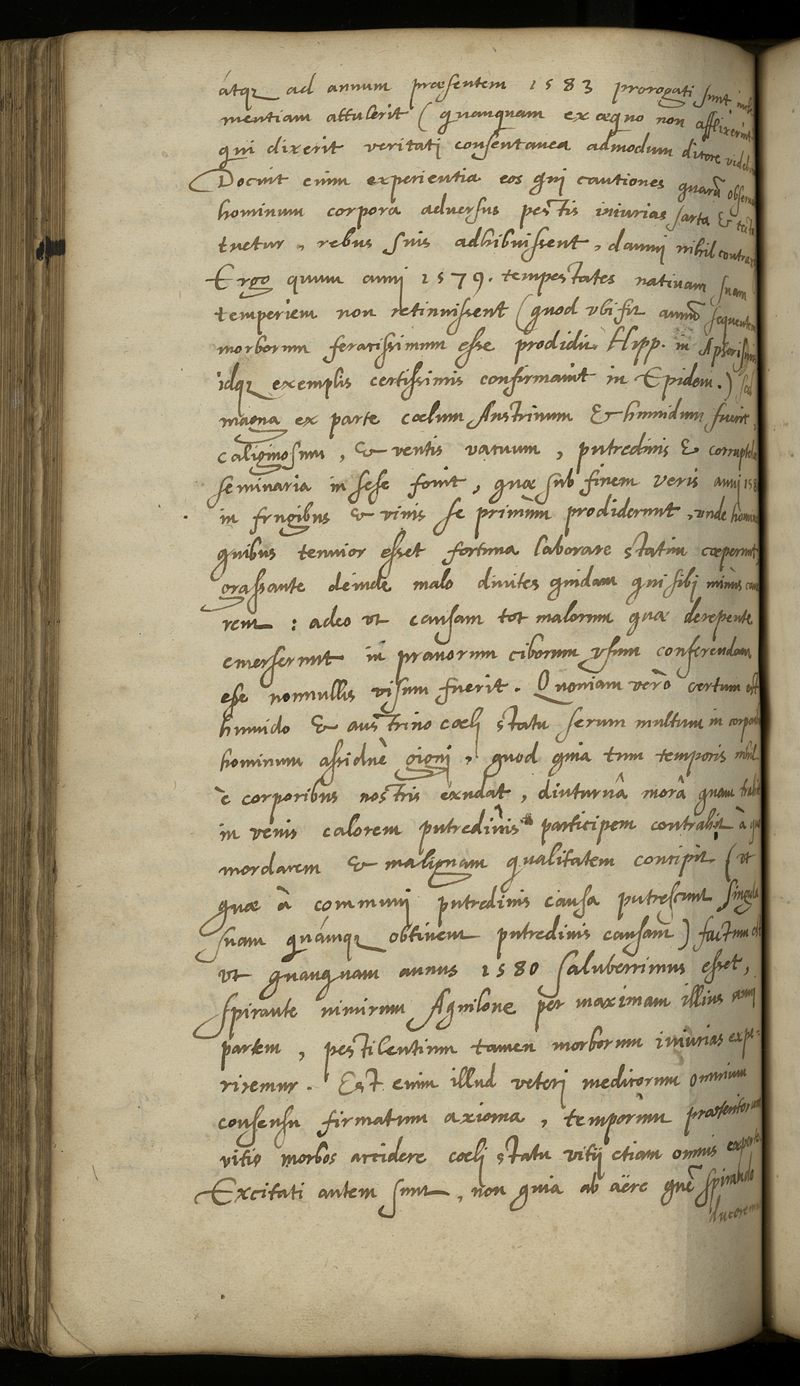 átque ad annum præsentem 1583 prorogati sunt
mentiam attulerit (quanquam ex æquo non afflixerint
qui dixerit veritati consentanea admodum dicere
Docuit enim experientia eos qui cautiones quarũ
hominum corpora adversus pestis iniurias sarta & tecta
tuetur, rebus suis adhibuissent, damni nihil
Ergo quum anni 1579. tempestates nativam suam
temperiem non retinuissent (quod vbi fit annũ sequentem
morborum feracissimum esse prodidit Hipp. in Aphorismis
idque exemplis certissimis confirmavit in Epidem.) sed
magna ex parte cœlum Austrinum & humidum fuerit,
caliginosum, & ventis vacuum, putredinis & corruptelæ
seminaria in sese fovit, quæ sub finem veris anni
in frugibus & vinis se primùm prodiderunt, vnde
quibus tenuior esset fortuna laborare statim cœperunt,
grassante deinde malo divites quidam qui sibi minus
rent : adeo vt causam tot malorum quæ derepente
emerserunt in pravorum ciborum vsum conferendam
esse nonnullis visum fuerit. Quoniam verò certum est
humido & austrino cœli statu serum multum in
hominum assiduè gigni, quod quia tum temporis nihil
è corporibus nostris exudat, diuturnâ morâ quam
in venis calorem putredinis participem contrahit à
mordacem & malignam qualitatem concipit (vt
quæ à communi putredinis causa putrescunt singula
suam quámque obtinent putredinis causam) factum est
vt quanquam annus 1580 saluberrimus esset,
spirante nimirum Aquilone per maximam illius anni
partem, pestilentium tamen morborum iniurias expe-
riremur. Est enim illud veteri medicorum omnium
consensu firmatum axioma, temporum
vitio morbos accidere cœli statu vitij etiam omnis
Excitati autem sunt, non quia ab aëre quẽ spirando